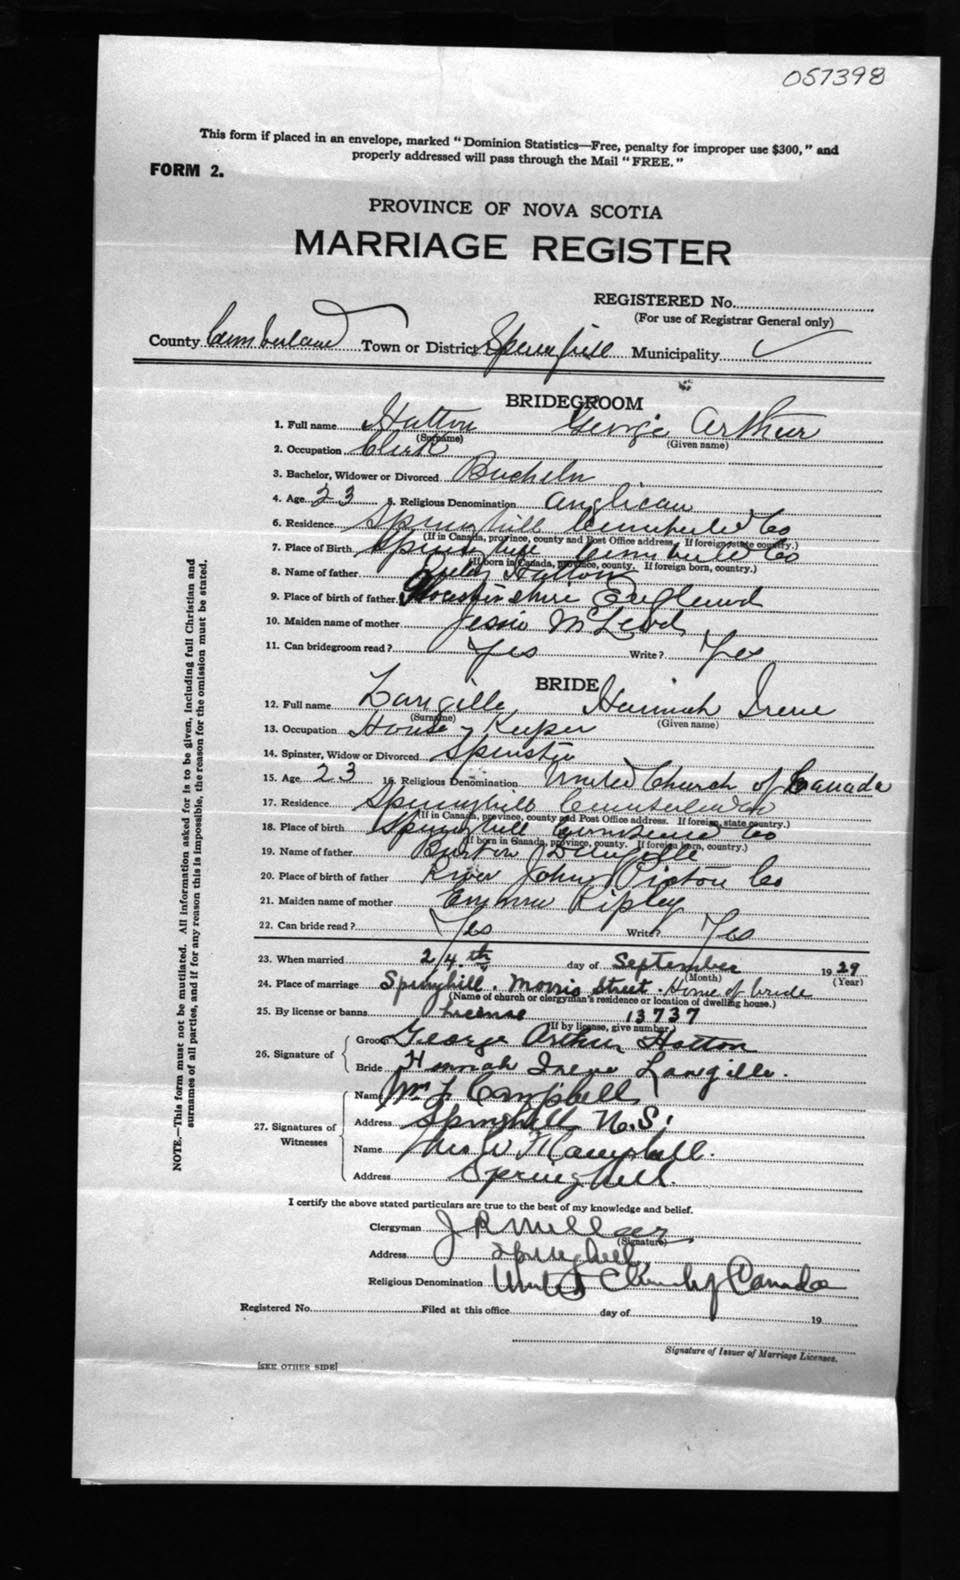 057398
This form if placed in an envelope, marked "Dominion Statistics—Free, penalty for improper use $300," and
properly addressed will pass through the Mail "FREE."
FORM 2.
PROVINCE OF NOVA SCOTIA
MARRIAGE REGISTER
REGISTERED No.
(For use of Registrar General only)
County Cumberland Town or District Springhill Municipality ✓
BRIDEGROOM
1. Full name Hatton George Arthur
(Surname) (Given name)
2. Occupation Clerk
3. Bachelor, Widower or Divorced Bachelor
4. Age 23 5. Religious Denomination Anglican
6. Residence Springhill Cumberland Co
(If in Canada, province, county and Post Office address. If foreign state country.)
7. Place of Birth Springhill Cumberland Co
(If born in Canada, province, county. If foreign born, country.)
8. Name of father Hatton
9. Place of birth of father England
10. Maiden name of mother Jessie McLeod
11. Can bridegroom read? Yes Write? Yes
BRIDE
12. Full name Langille Hannah Irene
(Surname) (Given name)
13. Occupation House Keeper
14. Spinster, Widow or Divorced Spinster
15. Age 23 16. Religious Denomination United Church of Canada
17. Residence Springhill Cumberland Co
(If in Canada, province, county and Post Office address. If foreign, state country.)
18. Place of birth Springhill Cumberland Co
(If born in Canada, province, county. If foreign born, country.)
19. Name of father Burton Langille
20. Place of birth of father River John Pictou Co
21. Maiden name of mother Emma Ripley
22. Can bride read? Yes Write? Yes
23. When married 24th day of September 1929
(Month) (Year)
24. Place of marriage Springhill. Morris Street. Home of bride
(Name of church or clergyman's residence or location of dwelling house.)
25. By license or banns License 13737
(If by license, give number)
26. Signature of
Groom George Arthur Hatton
Bride Hannah Irene Langille.
27. Signatures of Witnesses
Name Wm F Campbell
Address Springhill N.S.
Name Mrs W F Campbell.
Address Springhill.
I certify the above stated particulars are true to the best of my knowledge and belief.
Clergyman J R Millar
(Signature)
Address Springhill
Religious Denomination United Church of Canada
Registered No. Filed at this office day of 19
Signature of Issuer of Marriage Licenses.
[SEE OTHER SIDE]
NOTE.—This form must not be mutilated. All information asked for is to be given, including full Christian and
surnames of all parties, and if for any reason this is impossible, the reason for the omission must be stated.